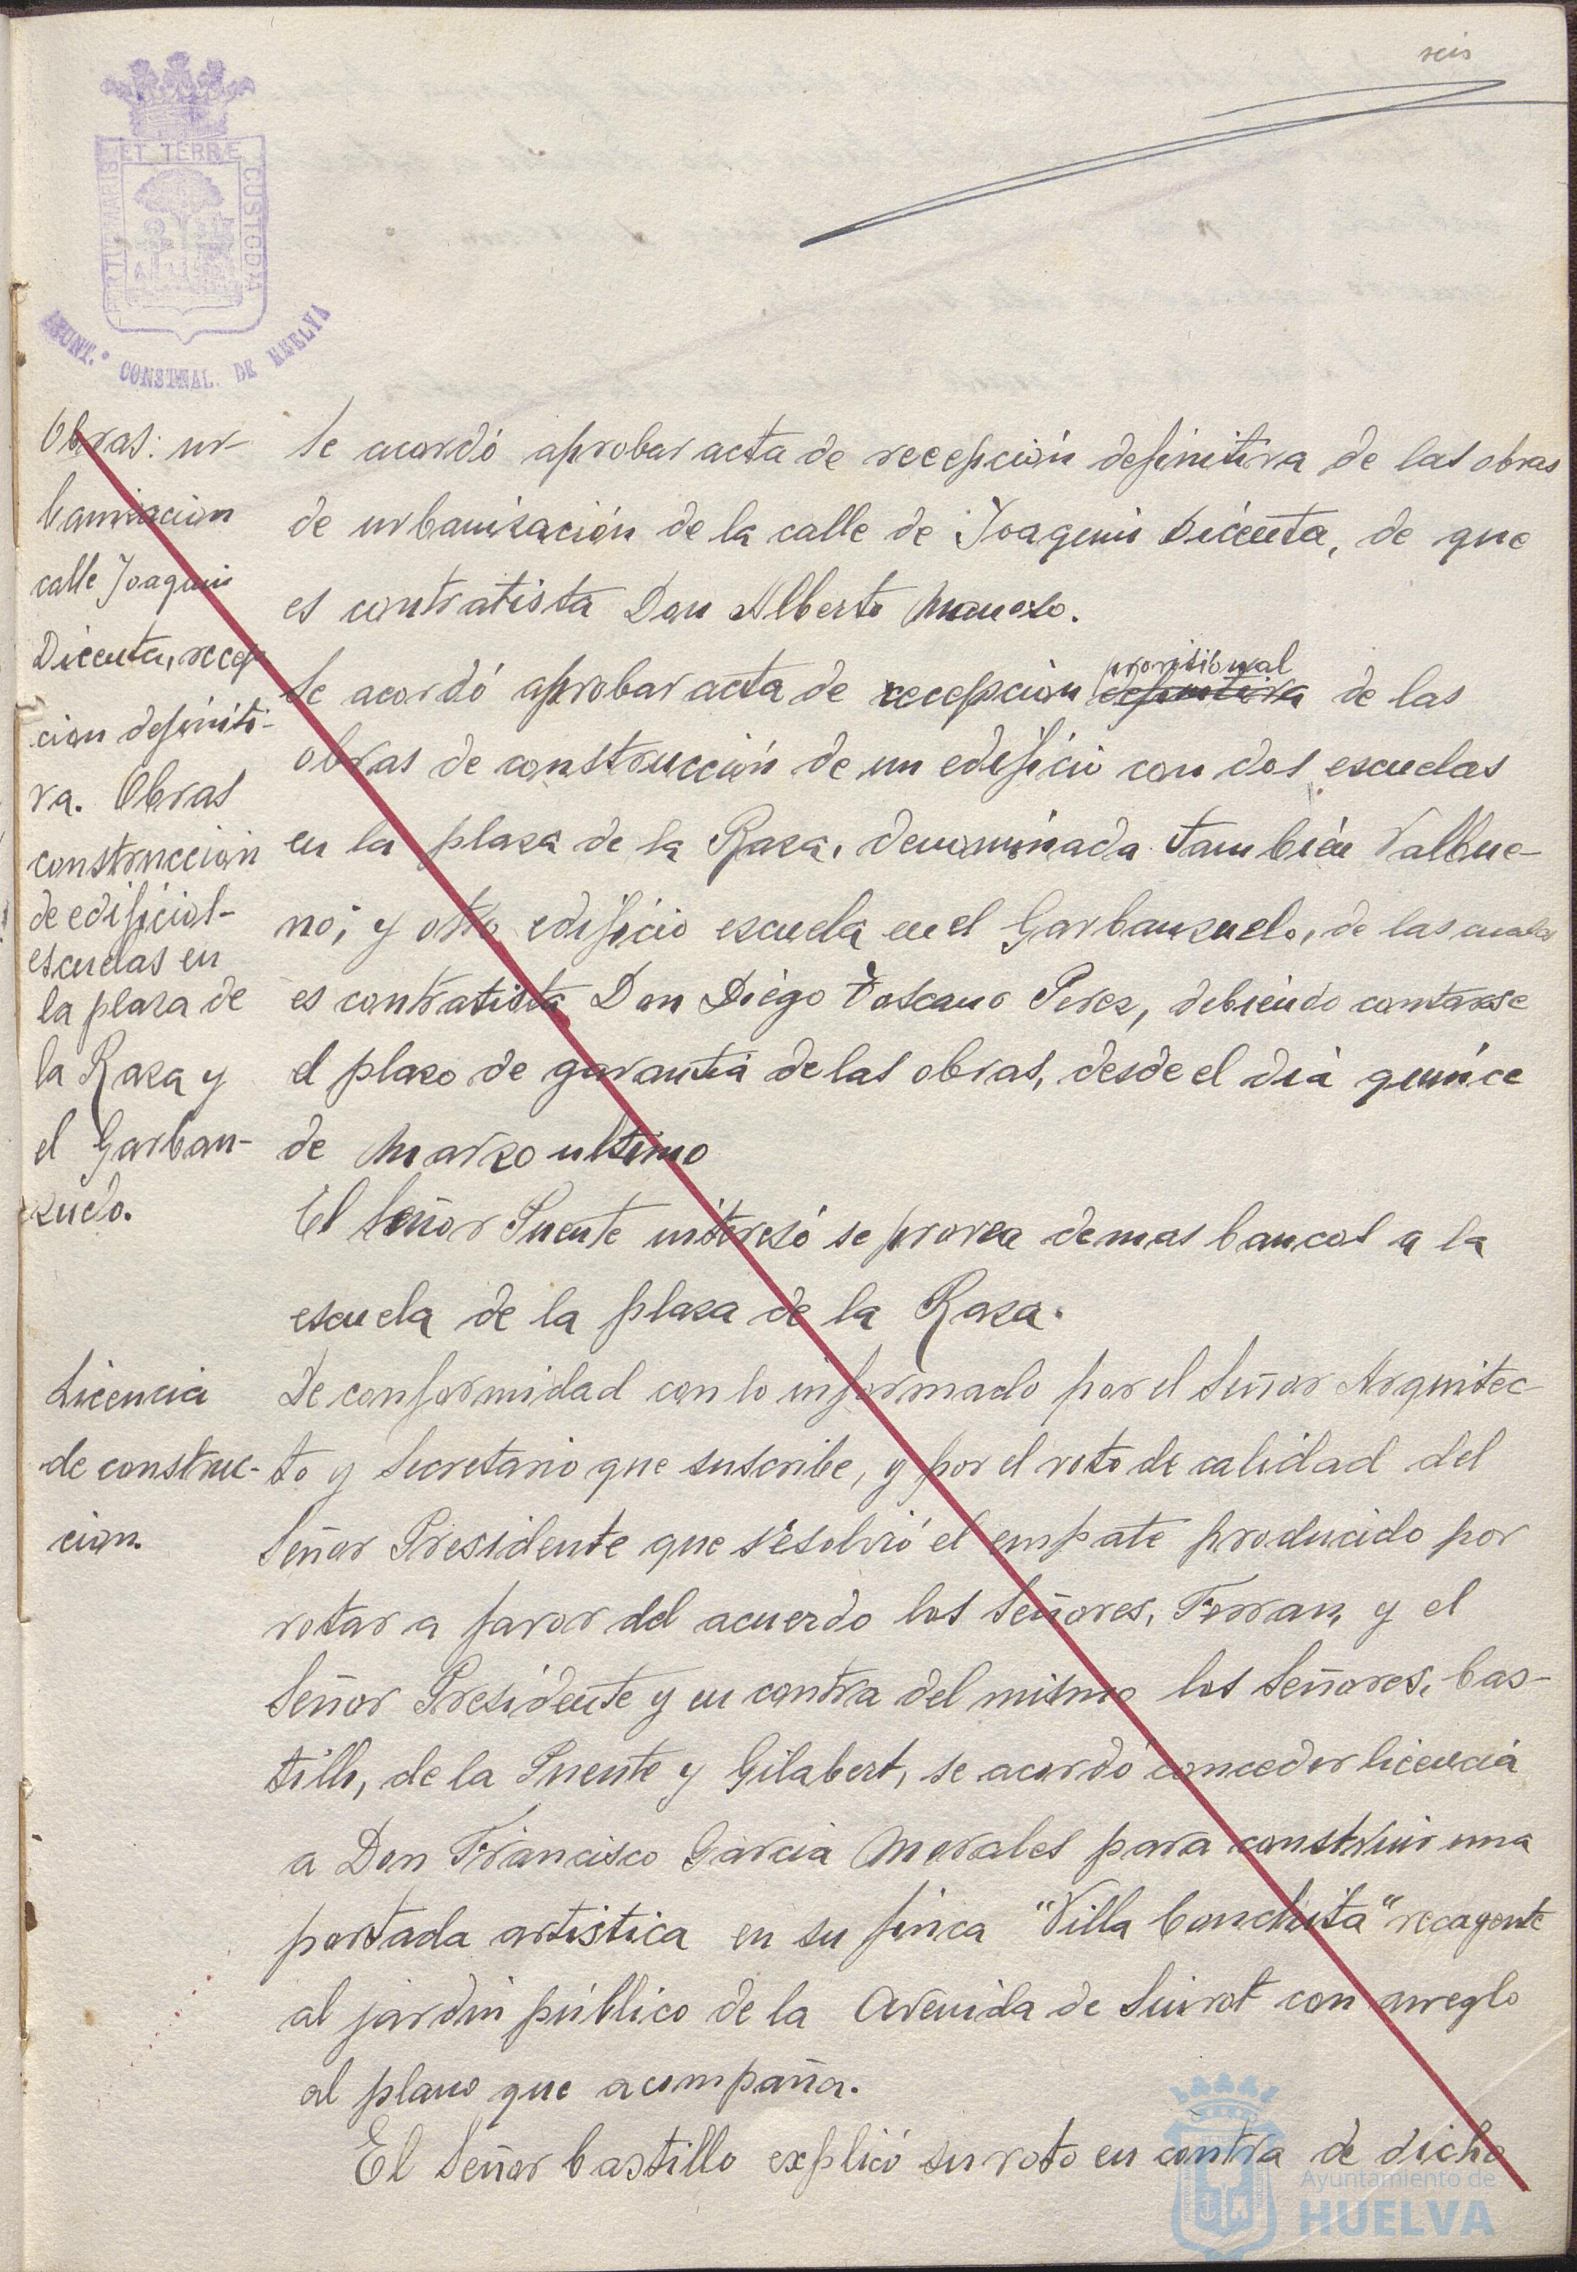 seis
PORTUS MARIS ET TERRE CUSTODIA
AYUNT.º CONSTNAL. DE HUELVA
Obras: ur-
banización
calle Joaquin
Dicenta, recep
cion definiti-
va. Obras
construccion
de edificios-
escuelas en
la plaza de
la Raza y
el Garban-
zuelo.
Se acordó aprobar acta de recepción definitiva de las obras
de urbanización de la calle de Joaquin Dicenta, de que
es contratista Don Alberto Manozo.
provisional
Se acordó aprobar acta de recepcion definitiva de las
obras de construcción de un edificio con dos escuelas
en la plaza de la Raza, denominada también Valbue-
no; y otro edificio escuela en el Garbanzuelo, de las cuales
es contratista Don Diego Toscano Perez, debiendo contarse
el plazo de garantia de las obras, desde el dia quince
de Marzo ultimo
El Señor Puente interesó se provea demas bancos a la
escuela de la plaza de la Raza.
Licencia
de construc-
cion.
De conformidad con lo informado por el Señor Arquitec-
to y Secretario que suscribe, y por el voto de calidad del
Señor Presidente que resolvió el empate producido por
votar a favor del acuerdo los Señores, Terran, y el
Señor Presidente y en contra del mismo los Señores, Cas-
tillo, de la Puente y Gilabert, se acordó conceder licencia
a Don Francisco Garcia Morales para construir una
portada artistica en su finca "Villa Conchita" recayente
al jardin público de la Avenida de Suirot con arreglo
al plano que acompaña.
El Señor Castillo explicó su voto en contra de dicho
Ayuntamiento de
HUELVA